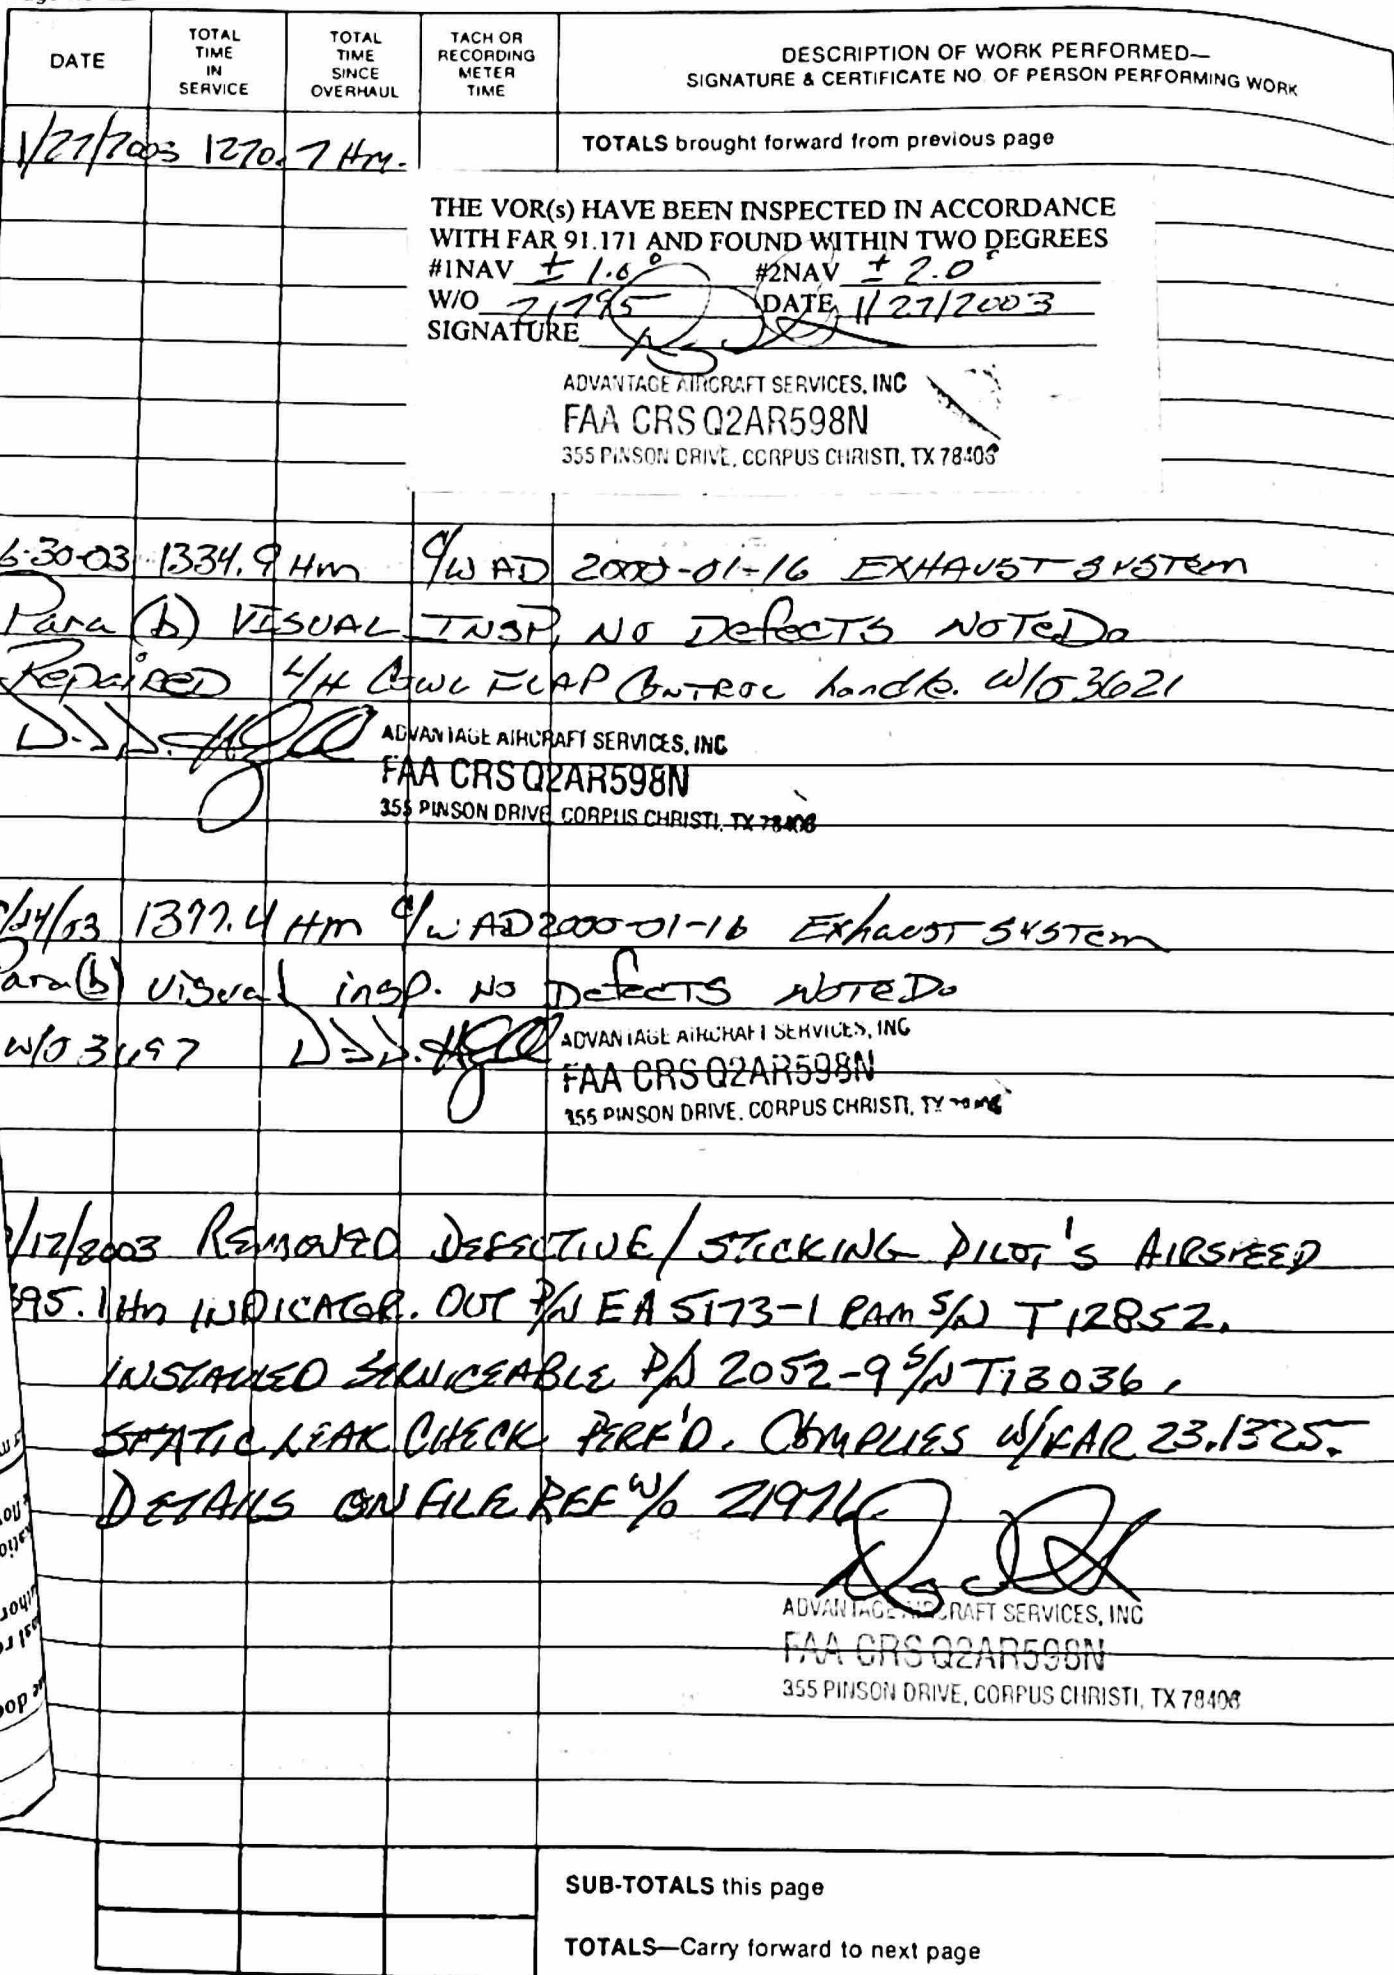 DATE
TOTAL TIME IN SERVICE
TOTAL TIME SINCE OVERHAUL
TACH OR RECORDING METER TIME
DESCRIPTION OF WORK PERFORMED—
SIGNATURE & CERTIFICATE NO. OF PERSON PERFORMING WORK
1/27/2003 1270.7 Hm.
TOTALS brought forward from previous page
THE VOR(s) HAVE BEEN INSPECTED IN ACCORDANCE
WITH FAR 91.171 AND FOUND WITHIN TWO DEGREES
#1NAV ± 1.0° #2NAV ± 2.0°
W/O 21795 DATE 1/27/2003
SIGNATURE
ADVANTAGE AIRCRAFT SERVICES, INC
FAA CRS Q2AR598N
355 PINSON DRIVE, CORPUS CHRISTI, TX 78406
6-30-03 1334.9 Hm C/W AD 2000-01-16 EXHAUST SYSTEM
Para (b) VISUAL INSP, NO DefecTS NOTeD.
RepaiReD L/H Cowl FLAP CONTROL handle. W/O 3621
ADVANTAGE AIRCRAFT SERVICES, INC
FAA CRS Q2AR598N
355 PINSON DRIVE, CORPUS CHRISTI, TX 78406
/03 1377.4 Hm C/W AD 2000-01-16 Exhaust SYSTem
Para(b) visual insp. No DefecTS NOTeD.
W/O 3697
ADVANTAGE AIRCRAFT SERVICES, INC
FAA CRS Q2AR598N
355 PINSON DRIVE, CORPUS CHRISTI, TX
/17/2003 REMOVED DEFECTIVE/STICKING PILOT'S AIRSPEED
395.1 Hm INDICATOR. OUT P/N EA 5173-1 RAM S/N T12852.
INSTALLED SERVICEABLE P/N 2052-9 S/N T13036.
STATIC LEAK CHECK PERF'D. COMPLIES W/FAR 23.1325.
DETAILS ON FILE REF W/O
ADVANTAGE AIRCRAFT SERVICES, INC
FAA CRS Q2AR598N
355 PINSON DRIVE, CORPUS CHRISTI, TX 78406
SUB-TOTALS this page
TOTALS—Carry forward to next page